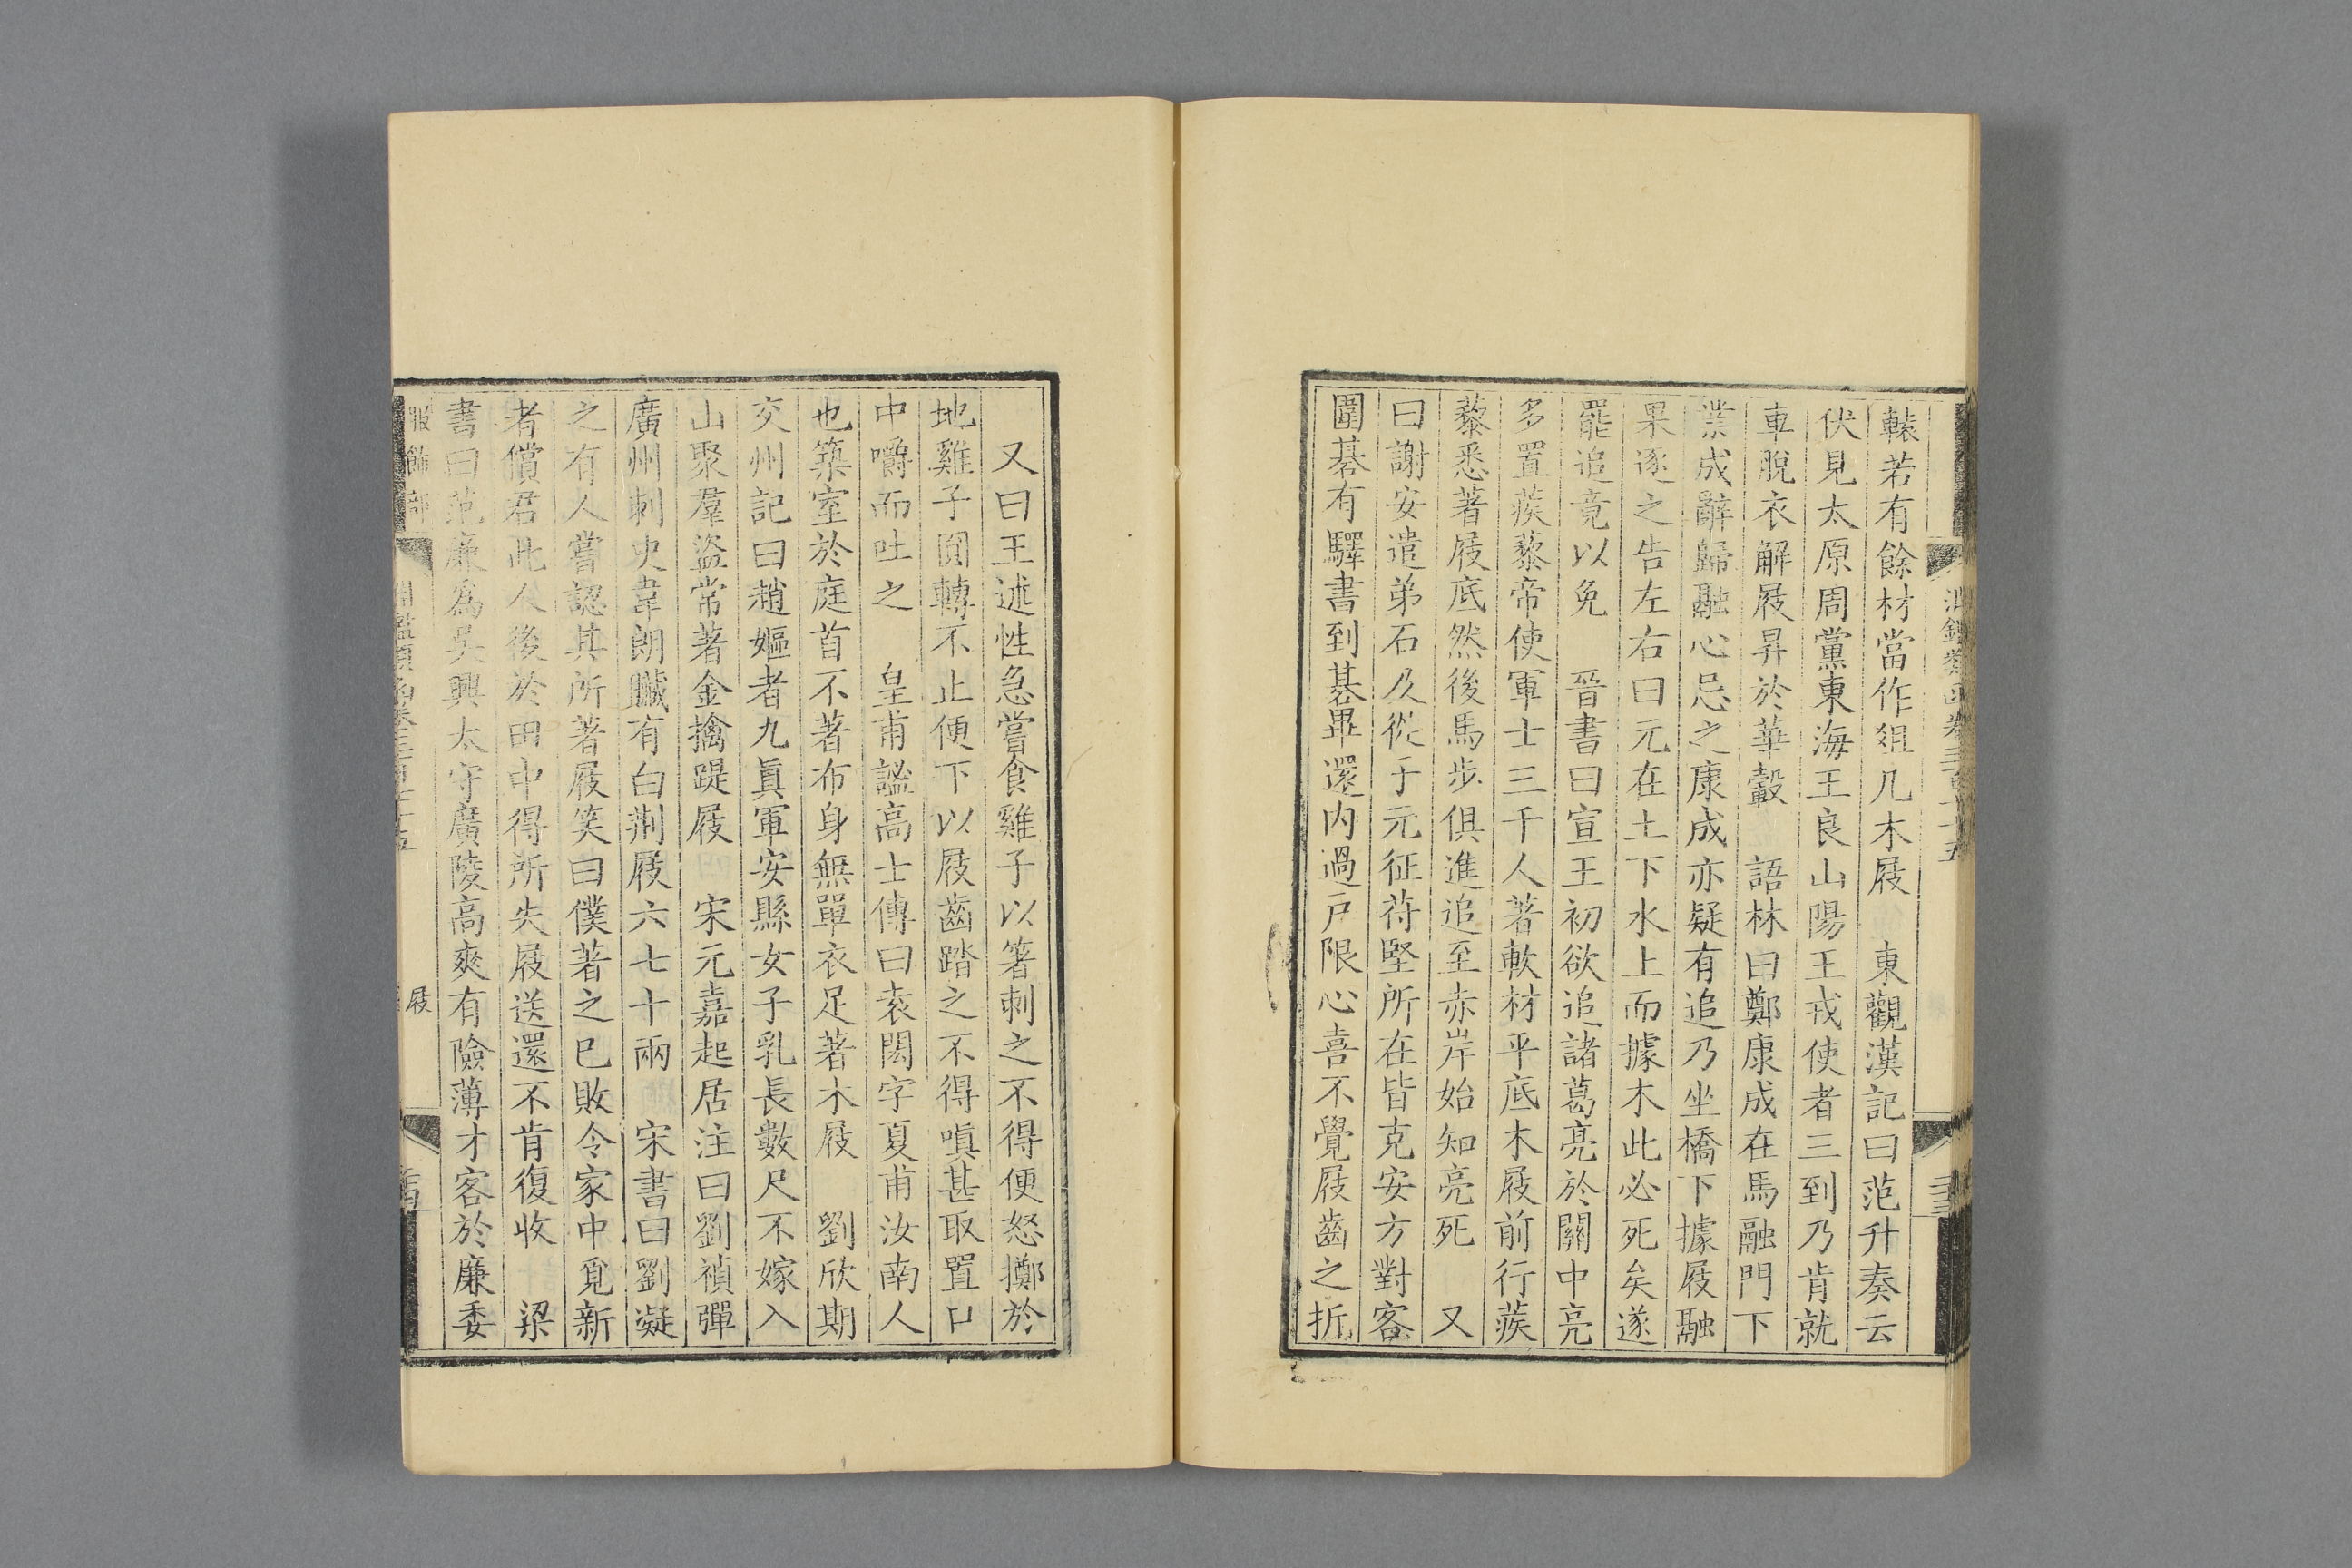 轅若有餘材當作俎几木屐　東觀漢記曰范升奏云
伏見太原周黨東海王良山陽王戎使者三到乃肯就
車脫衣解屐昇於華轂　語林曰鄭康成在馬融門下
業成辭歸融心忌之康成亦疑有追乃坐橋下據屐融
果逐之告左右曰元在土下水上而據木此必死矣遂
罷追竟以免　晉書曰宣王初欲追諸葛亮於關中亮
多置蒺藜帝使軍士三千人著軟材平底木屐前行蒺
藜悉著屐底然後馬步俱進追至赤岸始知亮死　又
曰謝安遣弟石及從子元征苻堅所在皆克安方對客
圍碁有驛書到碁畢還內過戶限心喜不覺屐齒之折
又曰王述性急嘗食雞子以箸刺之不得便怒擲於
地雞子圓轉不止便下以屐齒踏之不得嗔甚取置口
中嚼而吐之　皇甫謐高士傳曰袁閎字夏甫汝南人
也築室於庭首不著布身無單衣足著木屐　劉欣期
交州記曰趙嫗者九眞軍安縣女子乳長數尺不嫁入
山聚羣盜常著金擒踶屐　宋元嘉起居注曰劉禎彈
廣州刺史韋朗贓有白荆屐六七十兩　宋書曰劉凝
之有人嘗認其所著屐笑曰僕著之已敗令家中覓新
者償君此人後於田中得所失屐送還不肯復收　梁
書曰范廉爲吳興太守廣陵高爽有險薄才客於廉委
服飾部　淵鑑類函卷三百七十五　屐